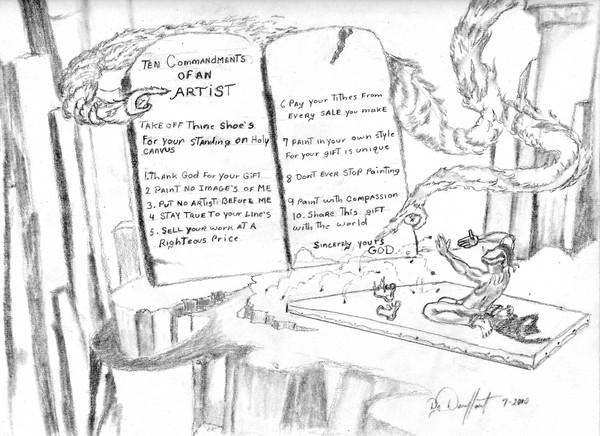 TEN COMMANDMENTS
OF AN
ARTIST
TAKE OFF THINE SHOE'S
FOR YOUR STANDING ON HOLY
CANVUS
1. THANK GOD FOR YOUR GIFT
2 PAINT NO IMAGE'S OF ME
3. PUT NO ARTIST BEFORE ME
4 STAY TRUE TO YOUR LINE'S
5. SELL YOUR WORK AT A
RIGHTEOUS PRICE
6 PAY YOUR TITHES FROM
EVERY SALE YOU MAKE
7 PAINT IN YOUR OWN STYLE
FOR YOUR GIFT IS UNIQUE
8 DON'T EVER STOP PAINTING
9 PAINT WITH COMPASSION
10. SHARE THIS GIFT
WITH THE WORLD
SINCERLY YOURS
GOD.
9-2010